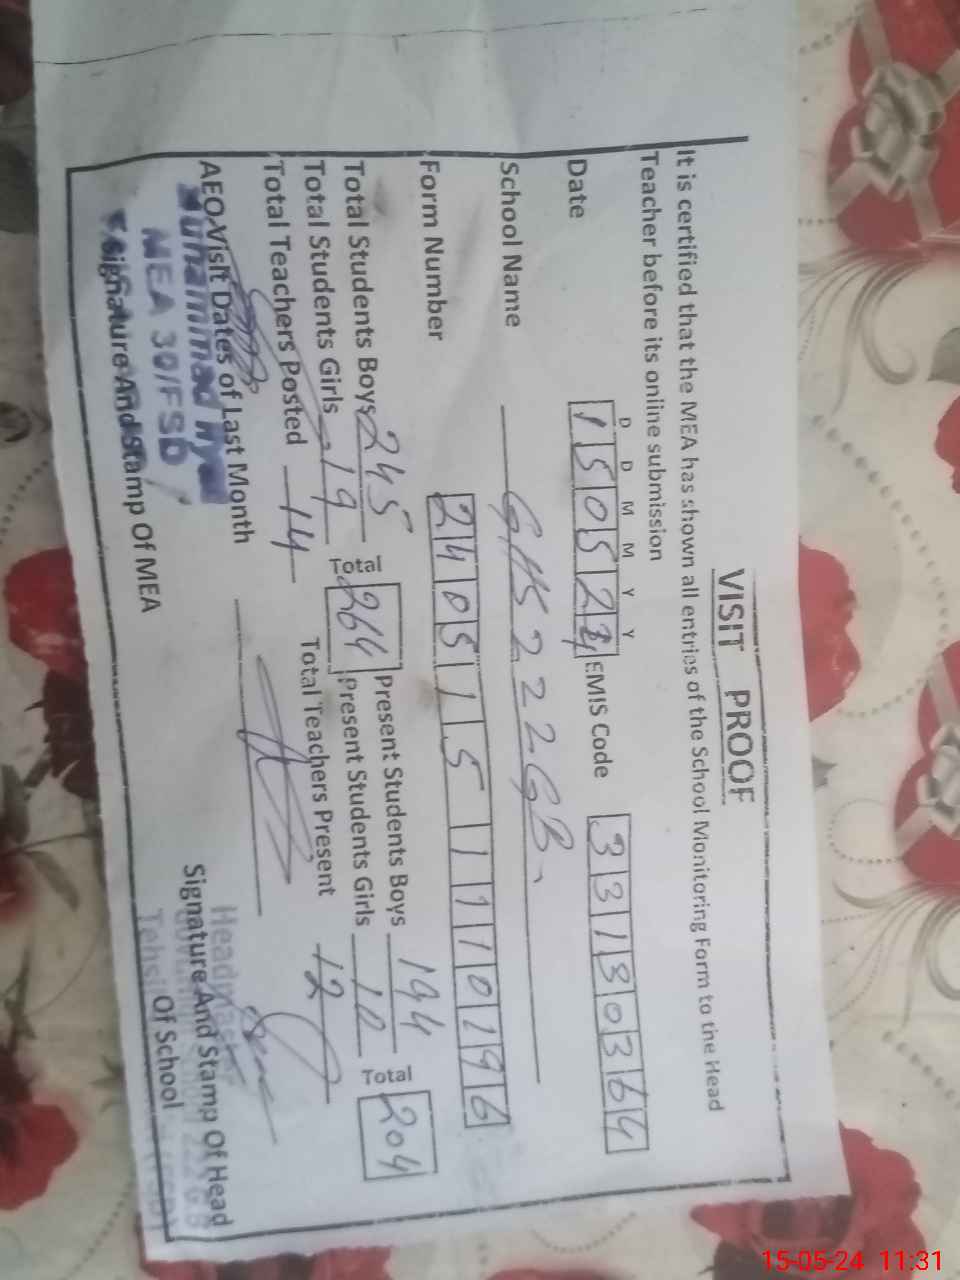 VISIT PROOF
It is certified that the MEA has shown all entries of the School Monitoring Form to the Head
Teacher before its online submission
D D M M Y Y
Date 150524 EMIS Code 33130364
School Name GHS 222 GB.
Form Number 2405151110196
Total Students Boys 245 Total 264 Present Students Boys 194 Total 204
Total Students Girls 19 Present Students Girls 10
Total Teachers Posted 14 Total Teachers Present 12
AEO Visit Dates of Last Month
Muhammad
MEA 30/FSD
Signature And Stamp Of MEA
Headmaster
Signature And Stamp Of Head
Of School
Tehsil
15-05-24 11:31